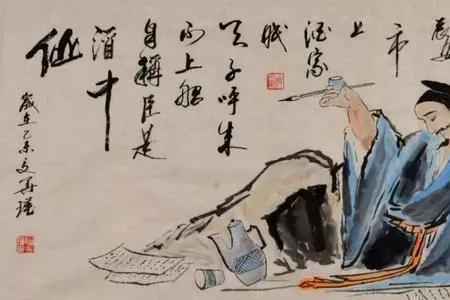 長安
市
上
酒家
眠
天子呼来
不上船
自稱臣是
酒中
仙
歲在乙未文